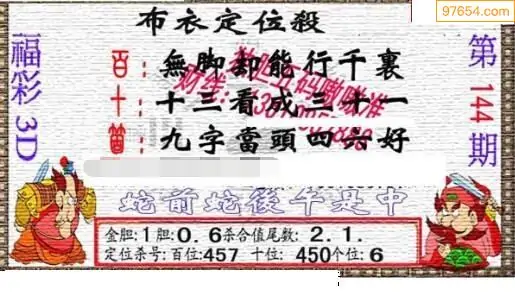 97654.com
布衣定位殺
福彩3D
第144期
百：無脚却能行千裏
十：十三看成三十一
個：九字當頭四六好
蛇前蛇後午是中
金胆:1胆:0.6杀合值尾数:2.1.
定位杀号:百位:457 十位:450个位:6